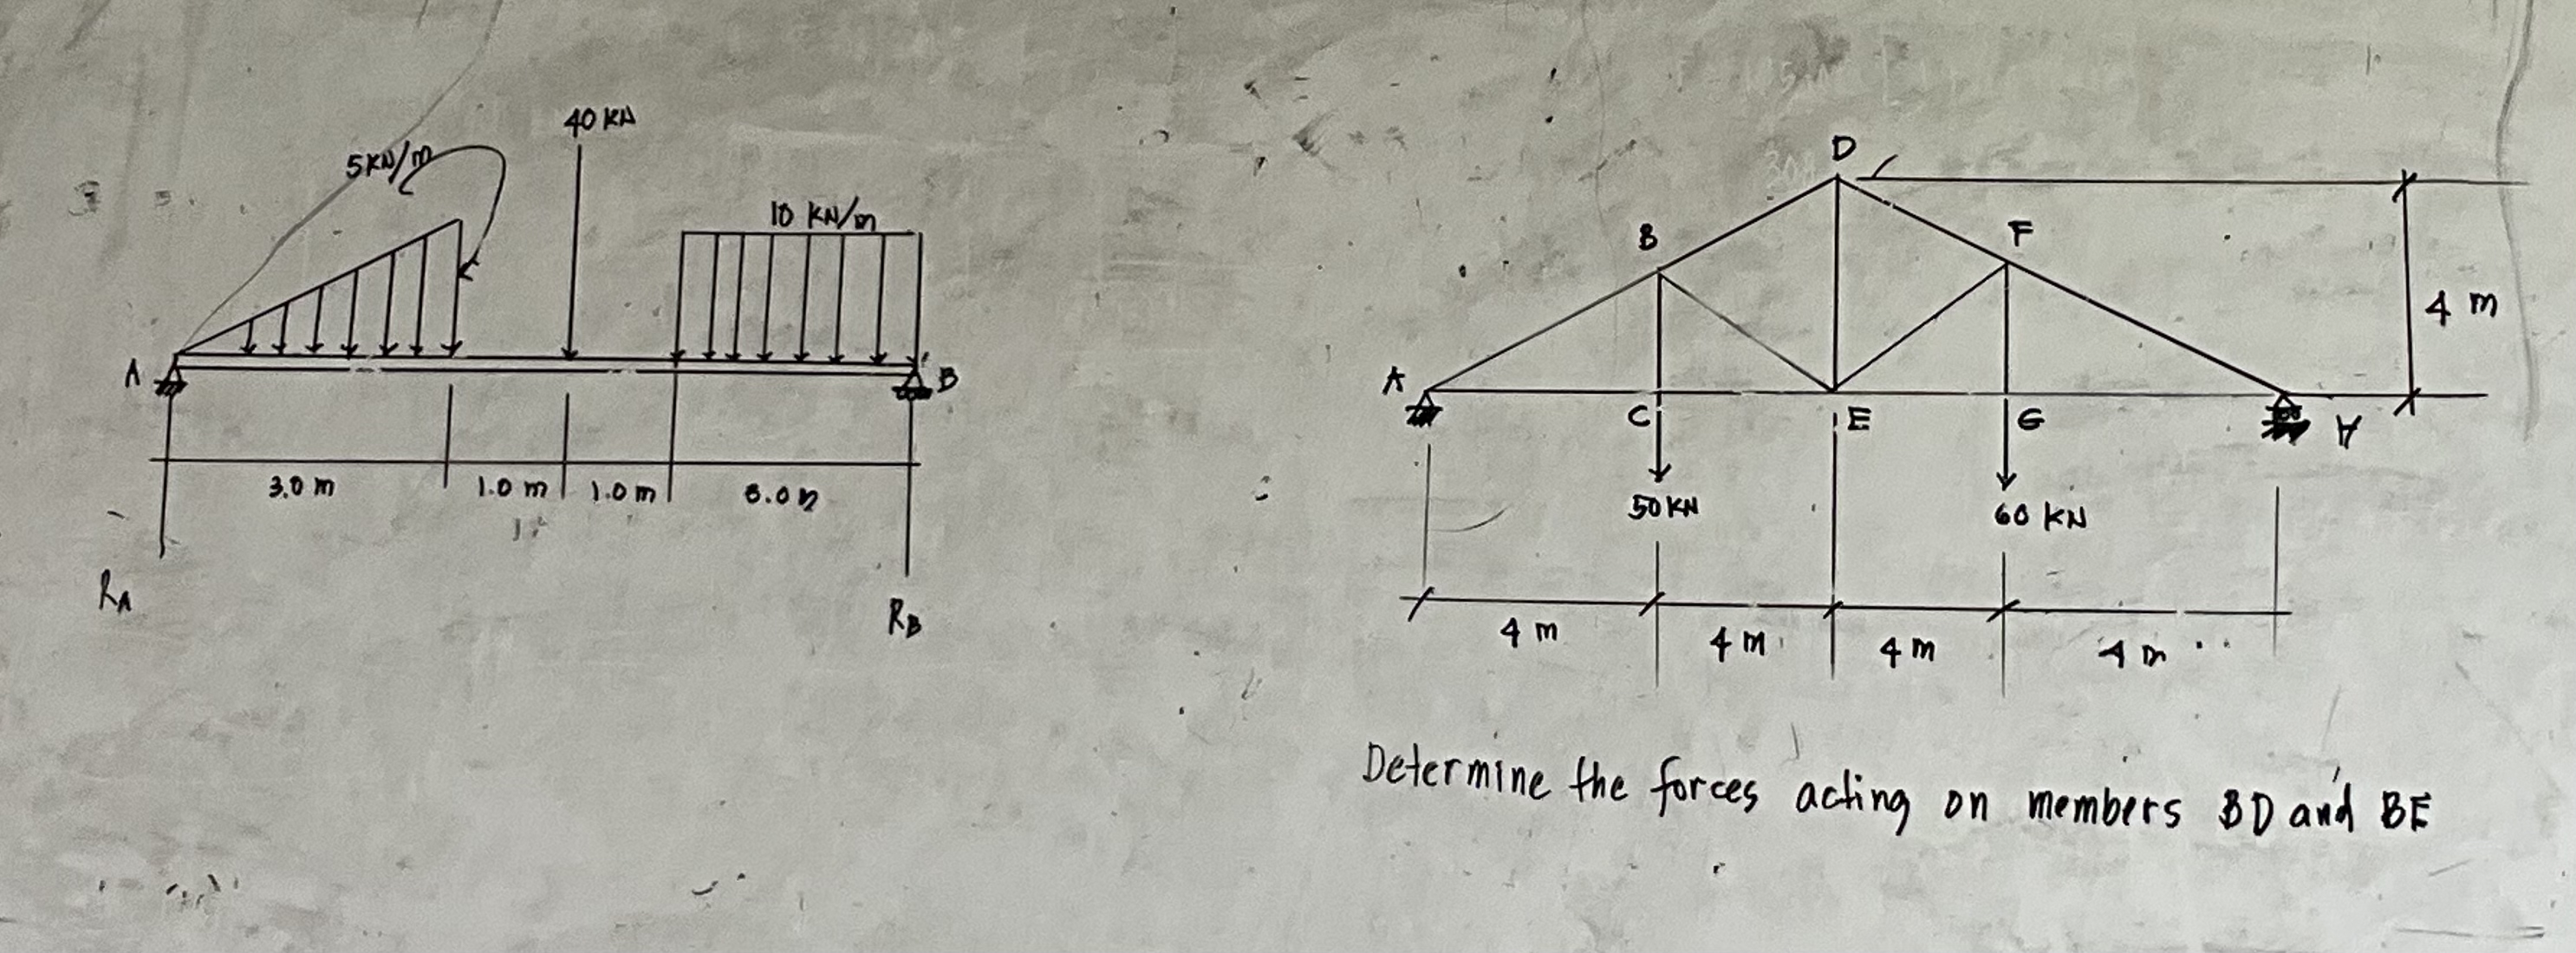 40 KN
5 KN/m
10 KN/m
A
B
3.0 m
1.0 m
1.0 m
RA
RB
D
B
F
4 m
A
C
E
G
H
50 KN
60 KN
4 m
4 m
4 m
4 m
Determine the forces acting on members BD and BE